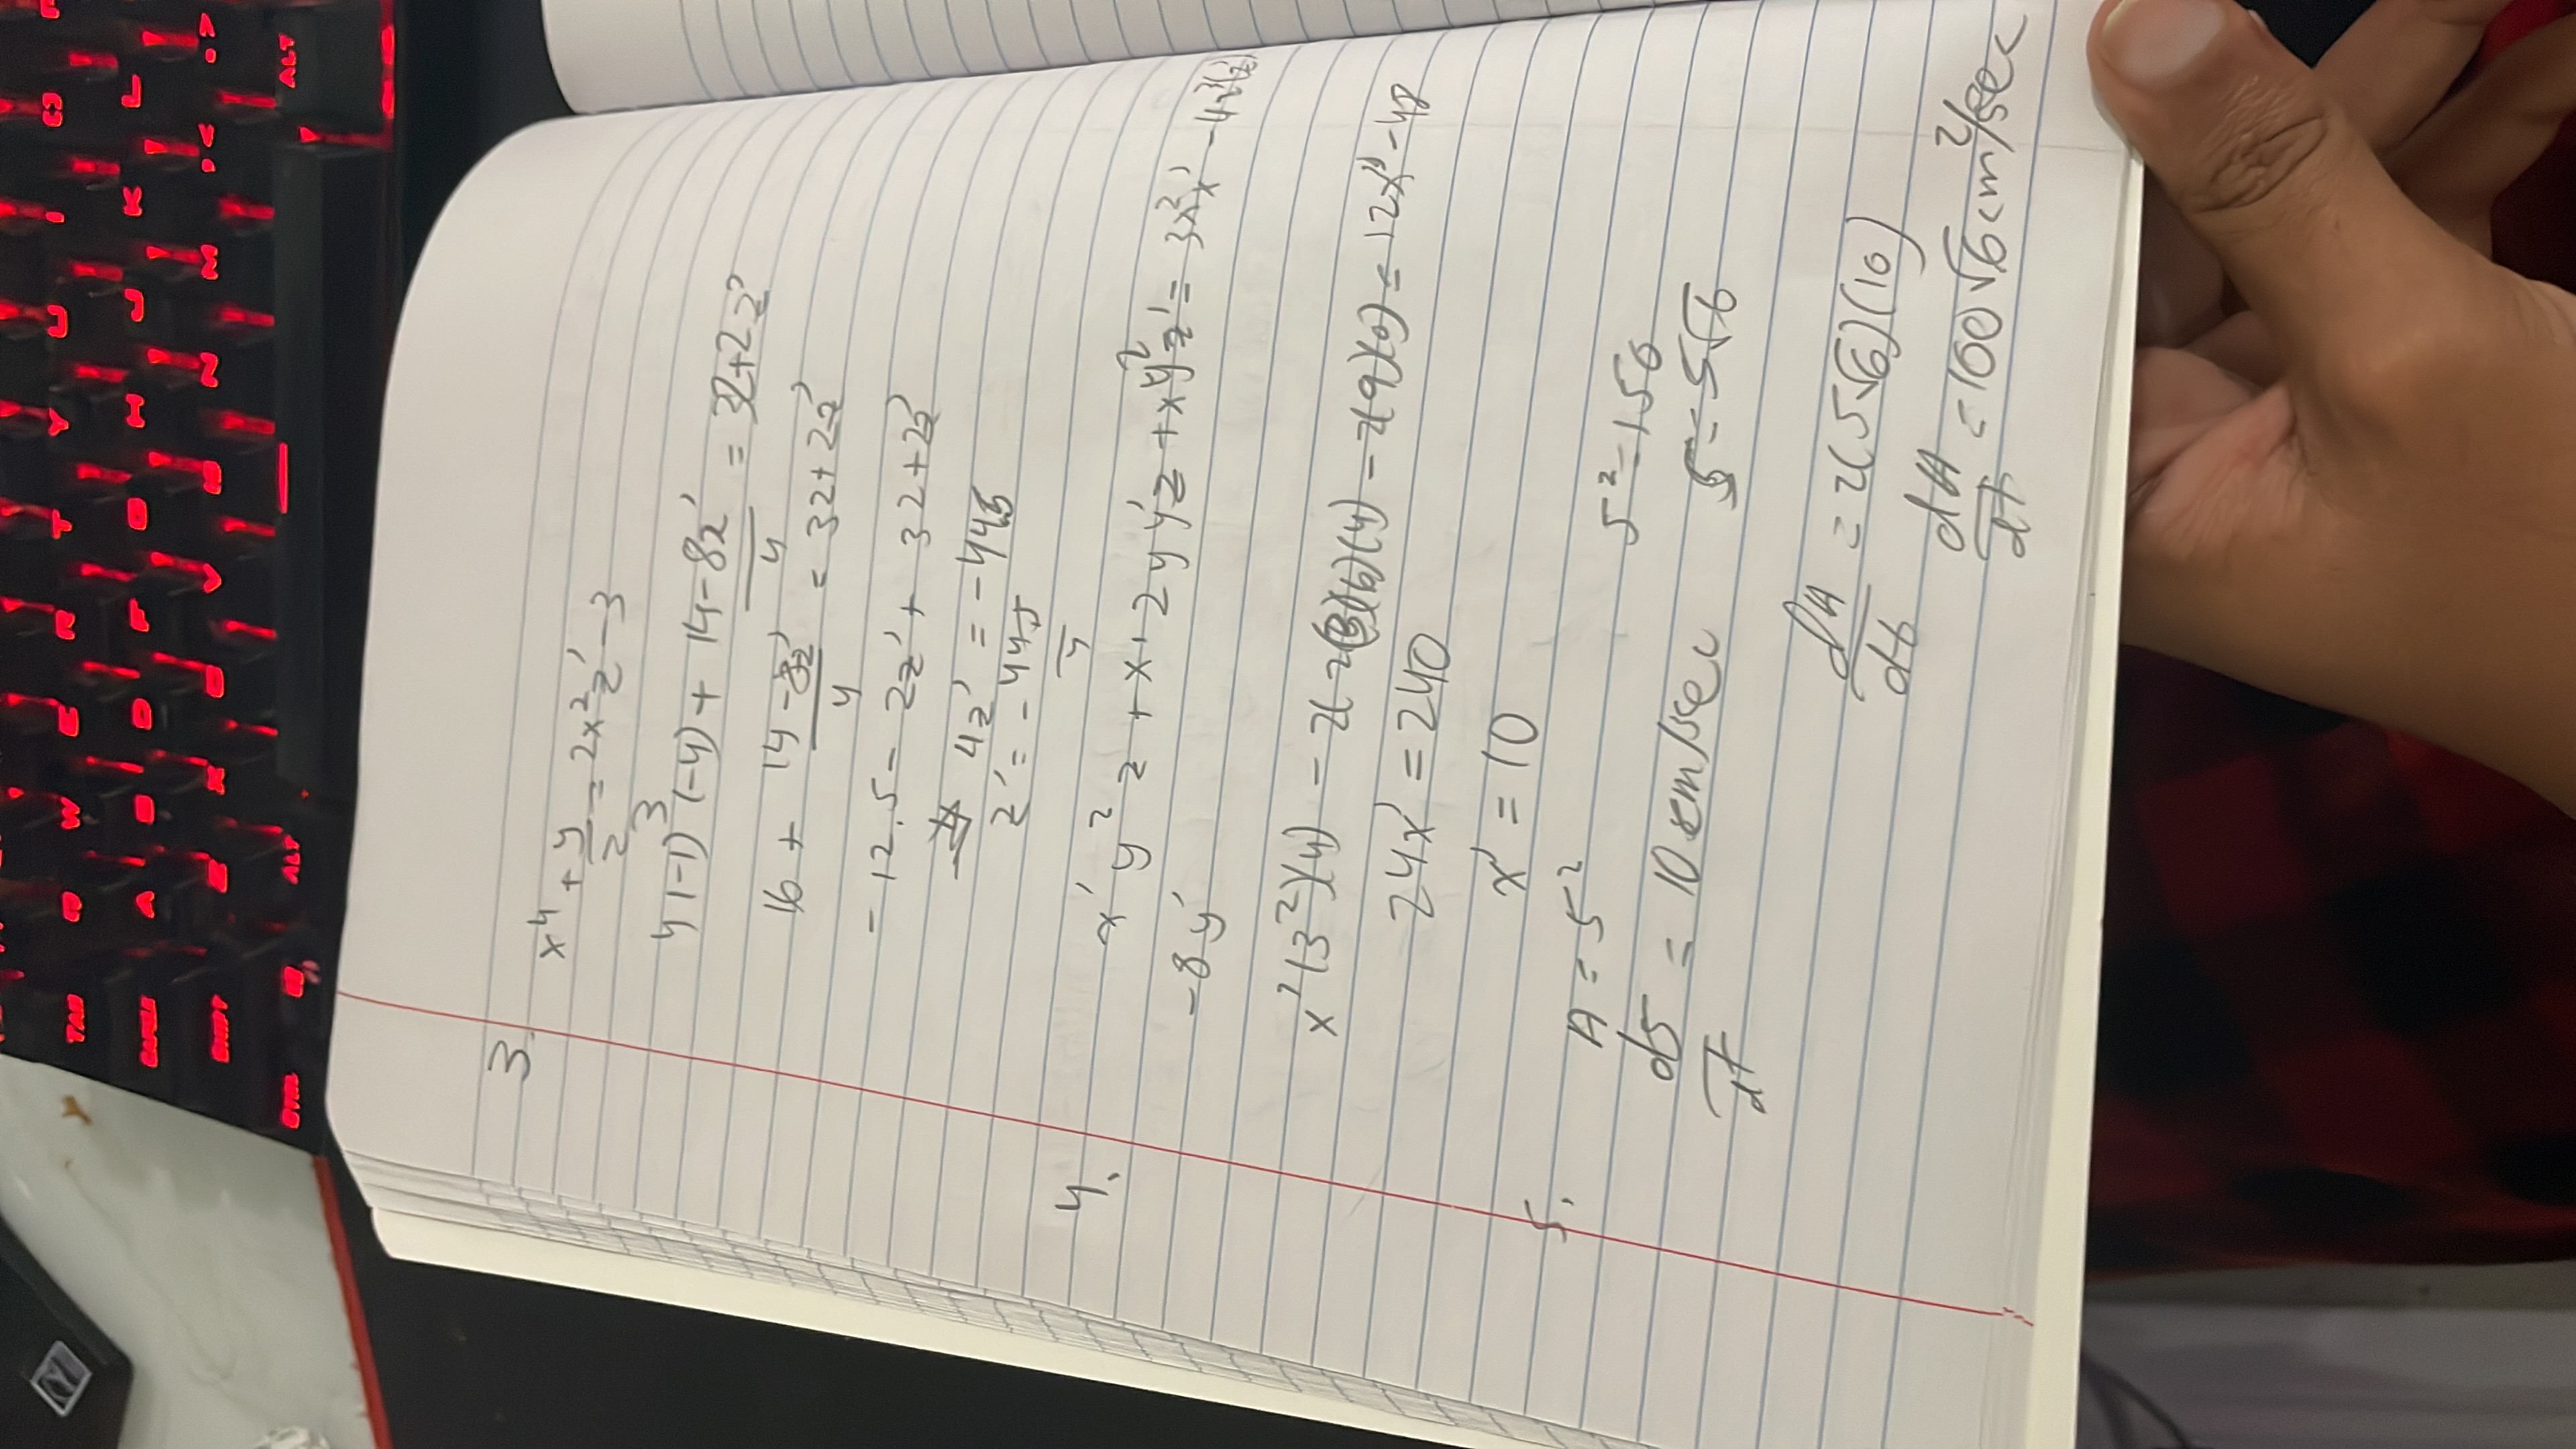 TAB Q W E R T Y U I
CAPSLK A S D F G H J K L
SHIFT Z X C V B N M , < . >
CTRL ALT ALT
3.
x⁴ + y/z = 2x²z' - 3
4(-1)³(-4) + (14-8z')/4 = 32+2z'
16 + (14-8z')/4 = 32+2z'
-12.5 - 2z' + 32+2z'
4z' = -44.5
z' = -44.5/4
4.
x'y²z + x·2yy'z + xy²z' = 3x²x' - 4z³(z')
-8y'
x'(3²)(4) - 2(2(3)(6)(4) - 2(9)(0) = 12x' - 48
24x' = 240
x' = 10
5.
A = s²
s² = 150
ds/dt = 10 cm/sec
s = 5√6
dA/dt = 2(5√6)(10)
dA/dt = 100√6 cm²/sec